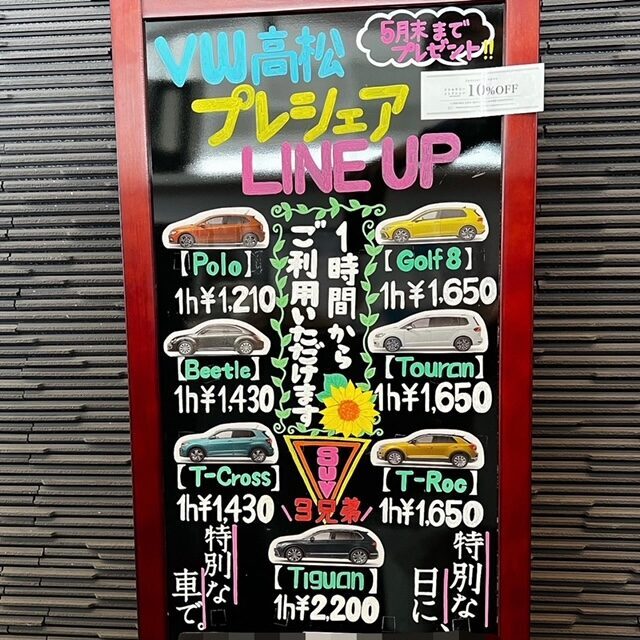 VW高松
5月末まで
プレゼント!!
プレシェア
10%OFF
LINE UP
1時間から
ご利用いただけます
【Polo】
1h¥1,210
【Golf8】
1h¥1,650
【Beetle】
1h¥1,430
【Touran】
1h¥1,650
【T-Cross】
1h¥1,430
SUV
\3兄弟/
【T-Roc】
1h¥1,650
【Tiguan】
1h¥2,200
特別な
日に、
特別な
車で。